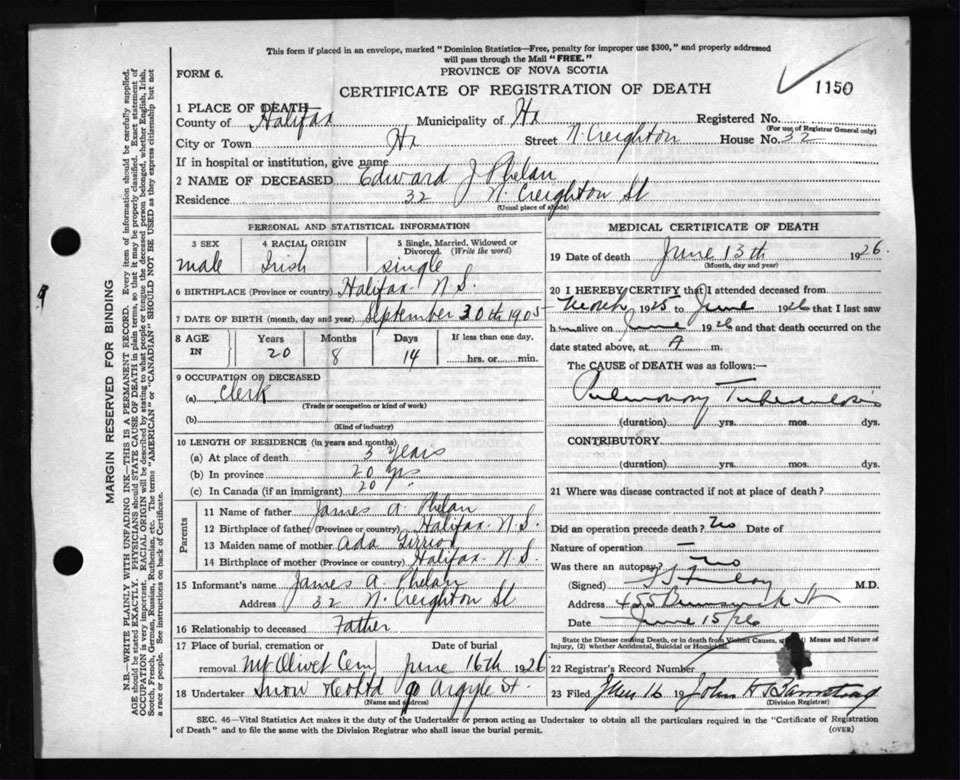 This form if placed in an envelope, marked "Dominion Statistics—Free, penalty for improper use $300," and properly addressed
will pass through the Mail "FREE."
PROVINCE OF NOVA SCOTIA
FORM 6.
CERTIFICATE OF REGISTRATION OF DEATH
1150
1 PLACE OF DEATH
County of Halifax Municipality of Hx Registered No.
(For use of Registrar General only)
City or Town Hx Street N. Creighton House No. 32
If in hospital or institution, give name
2 NAME OF DECEASED Edward J Phelan
Residence 32 N. Creighton St
(Usual place of abode)
PERSONAL AND STATISTICAL INFORMATION
3 SEX 4 RACIAL ORIGIN 5 Single, Married, Widowed or
Divorced. (Write the word)
male Irish single
6 BIRTHPLACE (Province or country) Halifax N.S.
7 DATE OF BIRTH (month, day and year) September 30th 1905
8 AGE IN Years Months Days If less than one day,
20 8 14 hrs. or min.
9 OCCUPATION OF DECEASED
(a) Clerk
(Trade or occupation or kind of work)
(b)
(Kind of industry)
10 LENGTH OF RESIDENCE (in years and months)
(a) At place of death 3 years
(b) In province 20 yrs.
(c) In Canada (if an immigrant) 20 yrs.
Parents
11 Name of father James A. Phelan
12 Birthplace of father (Province or country) Halifax N.S.
13 Maiden name of mother Ada
14 Birthplace of mother (Province or country) Halifax N.S.
15 Informant's name James A. Phelan
Address 32 N. Creighton St
16 Relationship to deceased Father
17 Place of burial, cremation or Date of burial
removal Mt Olivet Cem June 16th 1926
18 Undertaker Snow & Co Ltd 90 Argyle St.
(Name and address)
MEDICAL CERTIFICATE OF DEATH
19 Date of death June 13th 1926
(Month, day and year)
20 I HEREBY CERTIFY that I attended deceased from
1925 to June 1926 that I last saw
him alive on June 1926 and that death occurred on the
date stated above, at A m.
The CAUSE of DEATH was as follows:—
Pulmonary Tuberculosis
(duration) yrs. mos. dys.
CONTRIBUTORY
(duration) yrs. mos. dys.
21 Where was disease contracted if not at place of death?
Did an operation precede death? No Date of
Nature of operation
Was there an autopsy? No
(Signed) M.D.
Address 455 Brunswick St
Date June 15/26
State the Disease causing Death, or in death from Violent Causes, Means and Nature of
Injury, (2) whether Accidental, Suicidal or Homicidal.
22 Registrar's Record Number
23 Filed June 16 19 John H Barnstead
(Division Registrar)
SEC. 46—Vital Statistics Act makes it the duty of the Undertaker or person acting as Undertaker to obtain all the particulars required in the "Certificate of Registration
of Death" and to file the same with the Division Registrar who shall issue the burial permit.
(OVER)
MARGIN RESERVED FOR BINDING
N.B.—WRITE PLAINLY WITH UNFADING INK—THIS IS A PERMANENT RECORD. Every item of information should be carefully supplied.
AGE should be stated EXACTLY. PHYSICIANS should STATE CAUSE OF DEATH in plain terms, so that it may be properly classified. Exact statement of
OCCUPATION is very important. RACIAL ORIGIN will be described by stating to what people or tongue the deceased person belonged, whether English, Irish,
Scotch, French, German, Russian, Ruthenian, etc. The terms "AMERICAN" or "CANADIAN" SHOULD NOT BE USED as they express citizenship but not
a race or people. See instructions on back of Certificate.